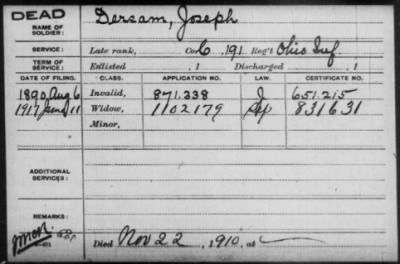 DEAD
NAME OF SOLDIER: Dersam, Joseph
SERVICE: Late rank, Co. C, 191 Reg't Ohio Inf
TERM OF SERVICE: Enlisted , 1 Discharged , 1
DATE OF FILING. CLASS. APPLICATION NO. LAW. CERTIFICATE NO.
1890 Aug 6 Invalid, 871.338 J 651.215
1917 June 11 Widow, 1102179 831631
Minor,
ADDITIONAL SERVICES:
REMARKS:
Died Nov 22, 1910, at